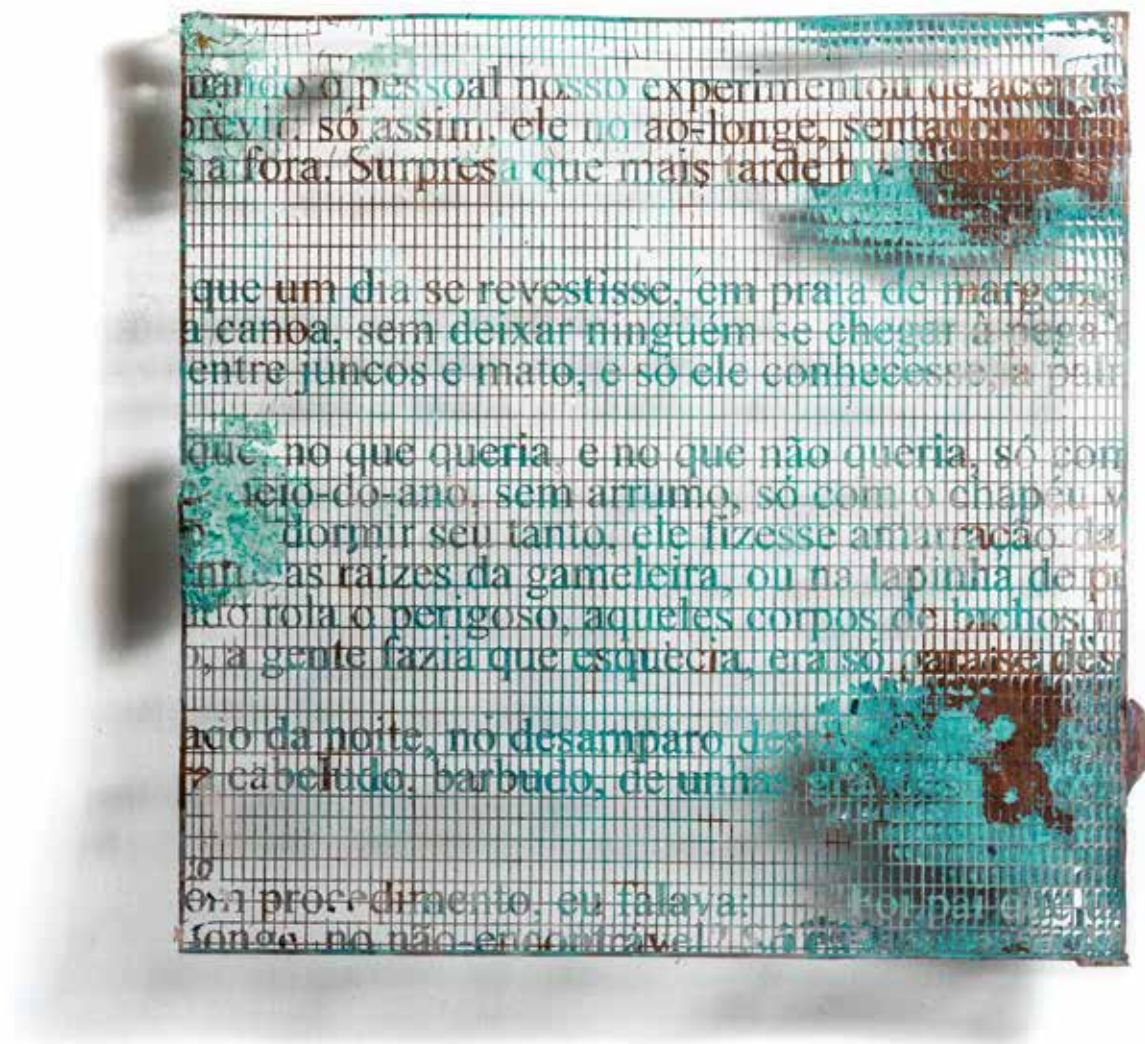 o pessoal nosso experimentou de
só assim, ele no ao-longe,
a fora. Surpresa que mais tarde
que um dia se revestisse, em praia de
a canoa, sem deixar ninguém se chegar à pega
entre juncos e mato, e só ele conhecesse, a
que no que queria, e no que não queria, só
sem arrumo, só com o chapéu
dormir seu tanto, ele fizesse amarração da
as raízes da gameleira, ou na lapinha de
rola o perigoso, aqueles corpos de bichos
a gente fazia que esquecia, era só
da noite, no desamparo
cabeludo, barbudo, de unhas
procedimento, eu falava:
longe, no não-encontrável?